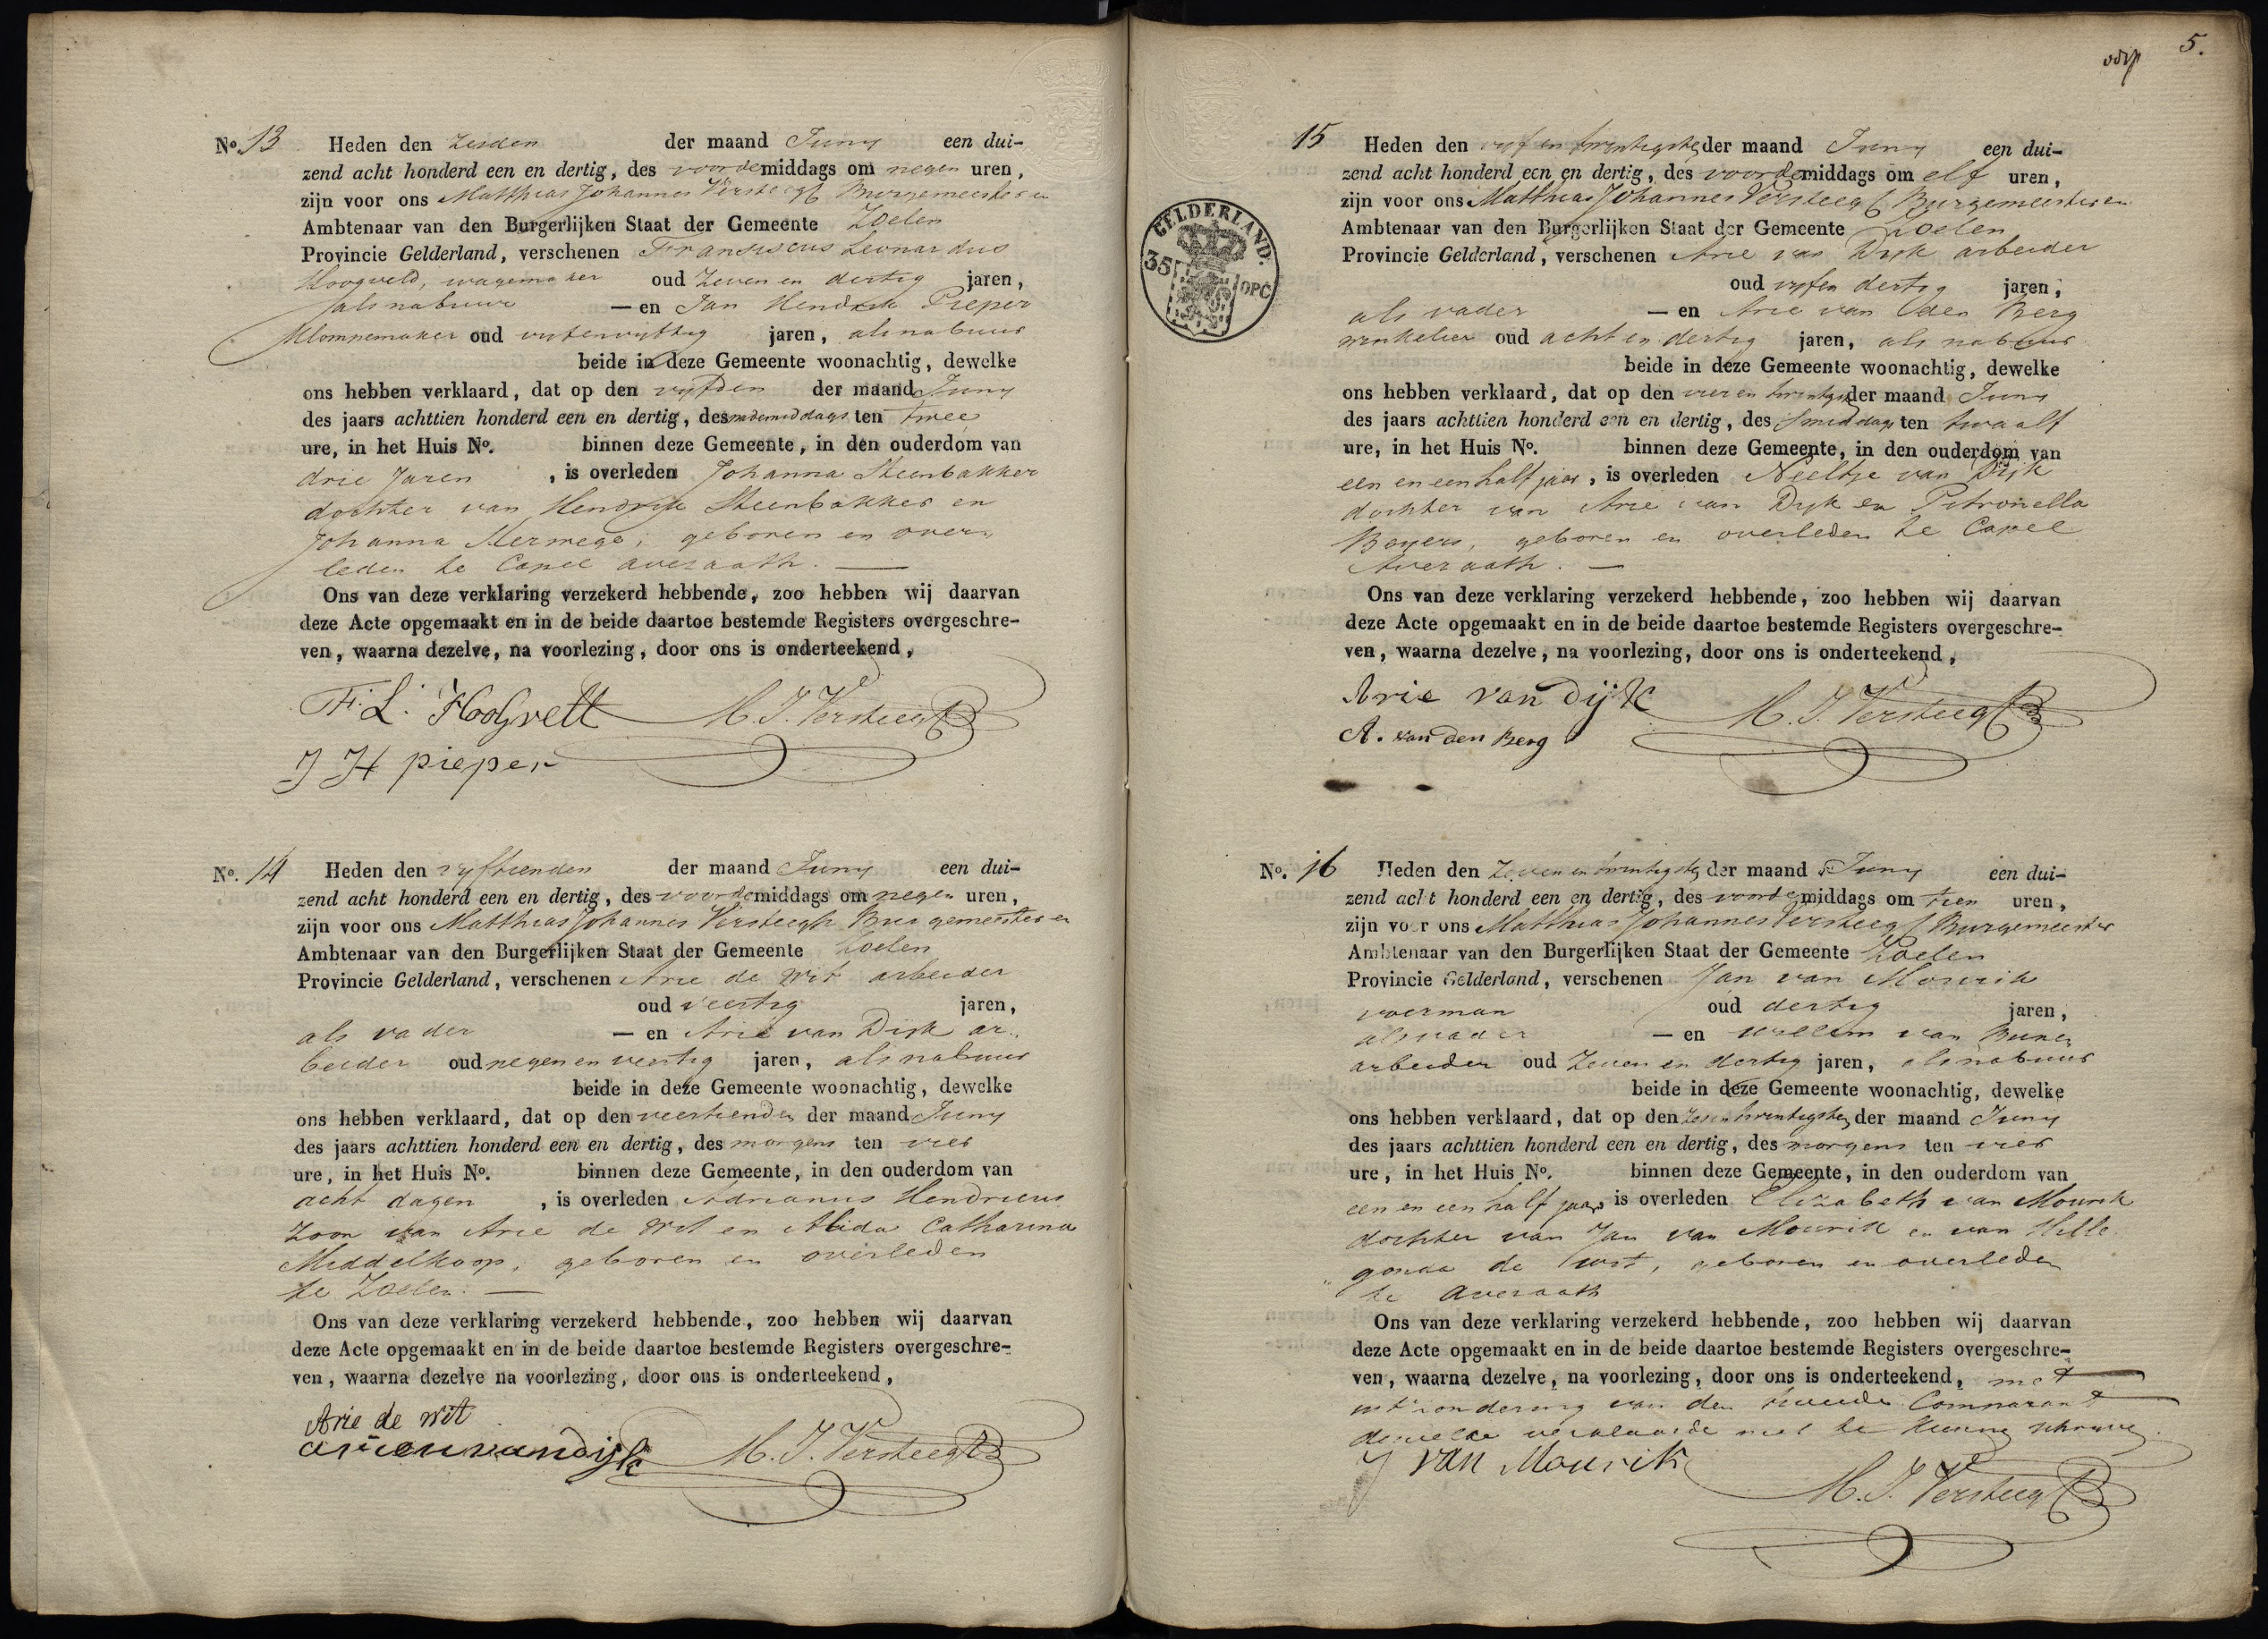 No. 13 Heden den zesden der maand Juny een dui-
zend acht honderd een en dertig, des voordemiddags om negen uren,
zijn voor ons Matthias Johannes Versteegh Burgemeester en
Ambtenaar van den Burgerlijken Staat der Gemeente Zoelen
Provincie Gelderland, verschenen Franciscus Leonardus
Hoogveld, wagemaker oud zeven en dertig jaren,
als nabuur — en Jan Hendrik Pieper
Klompemaker oud vyfenvyftig jaren, als nabuur
beide in deze Gemeente woonachtig, dewelke
ons hebben verklaard, dat op den vyfden der maand Juny
des jaars achttien honderd een en dertig, des nademiddags ten twee
ure, in het Huis No. binnen deze Gemeente, in den ouderdom van
drie Jaren , is overleden Johanna Steenbakker
dochter van Hendrik Steenbakker en
Johanna geboren en over-
leden te Capel Avezaath. —
Ons van deze verklaring verzekerd hebbende, zoo hebben wij daarvan
deze Acte opgemaakt en in de beide daartoe bestemde Registers overgeschre-
ven, waarna dezelve, na voorlezing, door ons is onderteekend,
F. L. Hoogvelt M. J. Versteegh
J H pieper
No. 14 Heden den vyftienden der maand Juny een dui-
zend acht honderd een en dertig, des voordemiddags om negen uren,
zijn voor ons Matthias Johannes Versteegh Burgemeester en
Ambtenaar van den Burgerlijken Staat der Gemeente Zoelen
Provincie Gelderland, verschenen Arie de Wit arbeider
oud veertig jaren,
als vader — en Arie van Dijk ar-
beider oud negen en veertig jaren, als nabuur
beide in deze Gemeente woonachtig, dewelke
ons hebben verklaard, dat op den veertienden der maand Juny
des jaars achttien honderd een en dertig, des morgens ten vier
ure, in het Huis No. binnen deze Gemeente, in den ouderdom van
acht dagen , is overleden Adrianus Hendricus
zoon van Arie de Wit en Alida Catharina
Middelkoop, geboren en overleden
te Zoelen. —
Ons van deze verklaring verzekerd hebbende, zoo hebben wij daarvan
deze Acte opgemaakt en in de beide daartoe bestemde Registers overgeschre-
ven, waarna dezelve na voorlezing, door ons is onderteekend,
Arie de Wit
arien van dijk M. J. Versteegh
5.
GELDERLAND.
35 OPC
15 Heden den vyf en twintigsten der maand Juny een dui-
zend acht honderd een en dertig, des voordemiddags om elf uren,
zijn voor ons Matthias Johannes Versteegh Burgemeester en
Ambtenaar van den Burgerlijken Staat der Gemeente Zoelen
Provincie Gelderland, verschenen Arie van Dyk arbeider
oud vyfen dertig jaren,
als vader — en Arie van den Berg
winkelier oud acht en dertig jaren, als nabuur
beide in deze Gemeente woonachtig, dewelke
ons hebben verklaard, dat op den vier en twintigsten der maand Juny
des jaars achttien honderd een en dertig, des smiddags ten twaalf
ure, in het Huis No. binnen deze Gemeente, in den ouderdom van
een en een half jaar, is overleden Neeltje van Dijk
dochter van Arie van Dyk en Petronella
Beyers, geboren en overleden te Capel
Avezaath. —
Ons van deze verklaring verzekerd hebbende, zoo hebben wij daarvan
deze Acte opgemaakt en in de beide daartoe bestemde Registers overgeschre-
ven, waarna dezelve, na voorlezing, door ons is onderteekend,
Arie van Dijk M. J. Versteegh
A. van den Berg
No. 16 Heden den zeven en twintigsten der maand Juny een dui-
zend acht honderd een en dertig, des voordemiddags om tien uren,
zijn voor ons Matthias Johannes Versteegh Burgemeester
Ambtenaar van den Burgerlijken Staat der Gemeente Zoelen
Provincie Gelderland, verschenen Jan van Mourik
voerman oud dertig jaren,
als vader — en Willem van
arbeider oud zeven en dertig jaren, als nabuur
beide in deze Gemeente woonachtig, dewelke
ons hebben verklaard, dat op den zesentwintigsten der maand Juny
des jaars achttien honderd een en dertig, des morgens ten vier
ure, in het Huis No. binnen deze Gemeente, in den ouderdom van
een en een half jaar, is overleden Elizabeth van Mourik
dochter van Jan van Mourik en van Hille-
gonda de Wit, geboren en overleden
te Avezaath
Ons van deze verklaring verzekerd hebbende, zoo hebben wij daarvan
deze Acte opgemaakt en in de beide daartoe bestemde Registers overgeschre-
ven, waarna dezelve, na voorlezing, door ons is onderteekend, met
uitzondering van den tweede Comparant
dewelke verklaarde niet te kunnen schryven.
J van Mourik
M. J. Versteegh